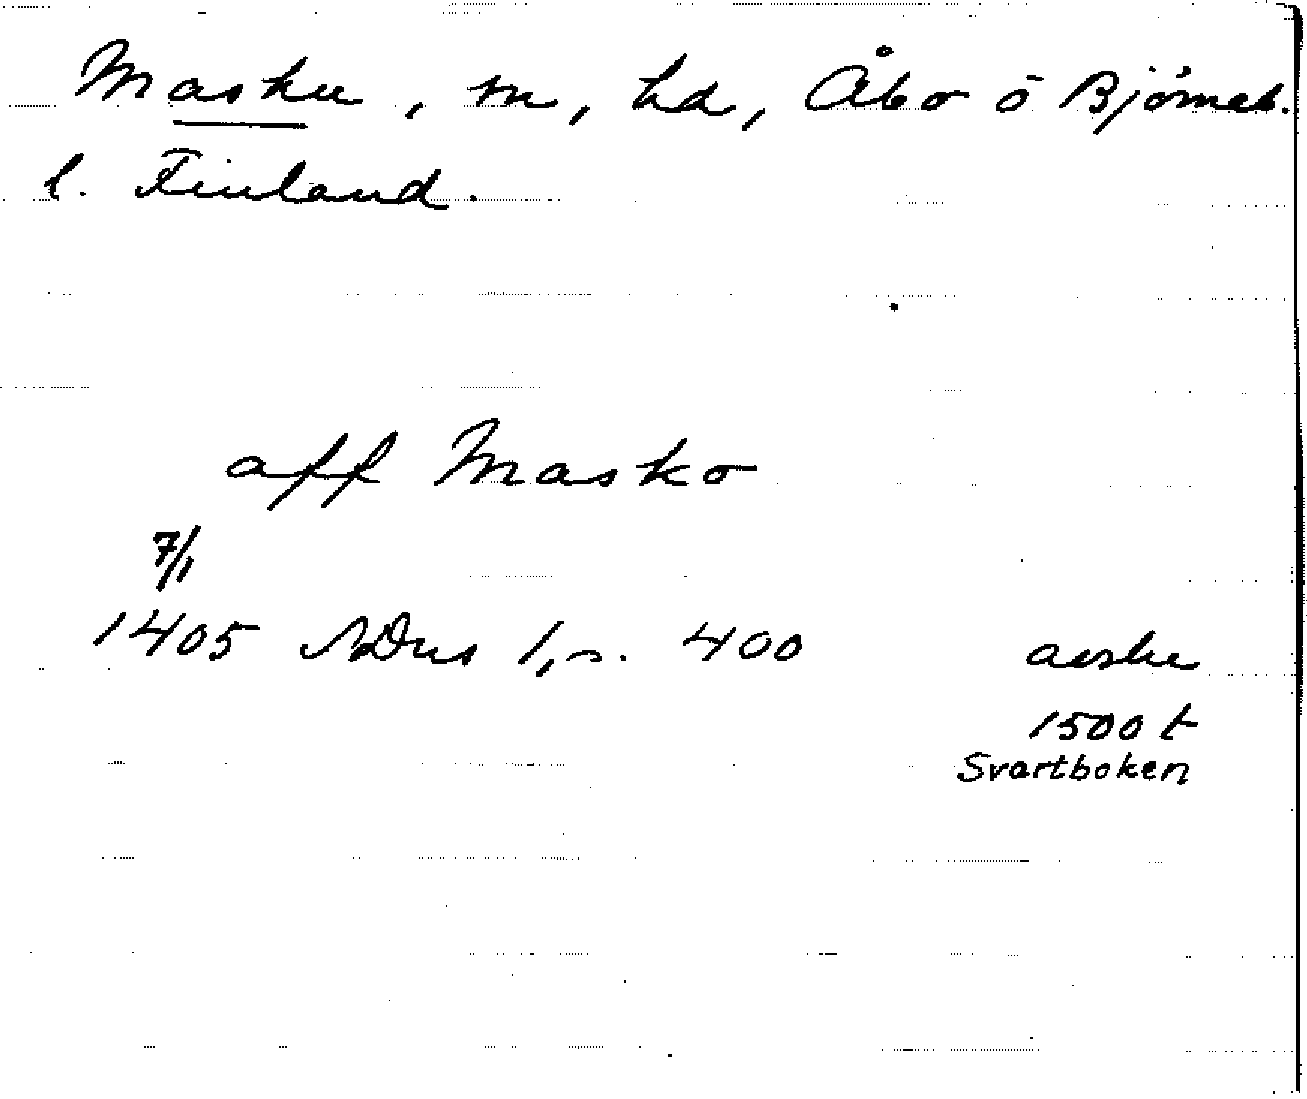 Masku, sn, hd, Åbo o Björneb.
l. Finland.
aff Masko
7/1
1405 SDns 1, s. 400
avskr
1500 t
Svartboken